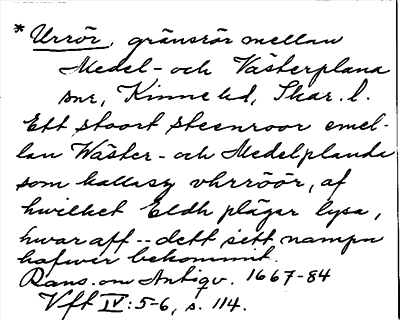 * Urrör, gränsrör mellan
Medel- och Västerplana
snr, Kinne hd, Skar. l.
Ett stoort steenroor emel-
lan Wäster- och Medelplanda
som kallasz vhrröör, af
hwilket Eldh plägar lysa,
hwar aff -- dett sitt nampn
hafwer bekommit.
Rans. om Antiqv. 1667-84
Vft IV: 5-6, s. 114.